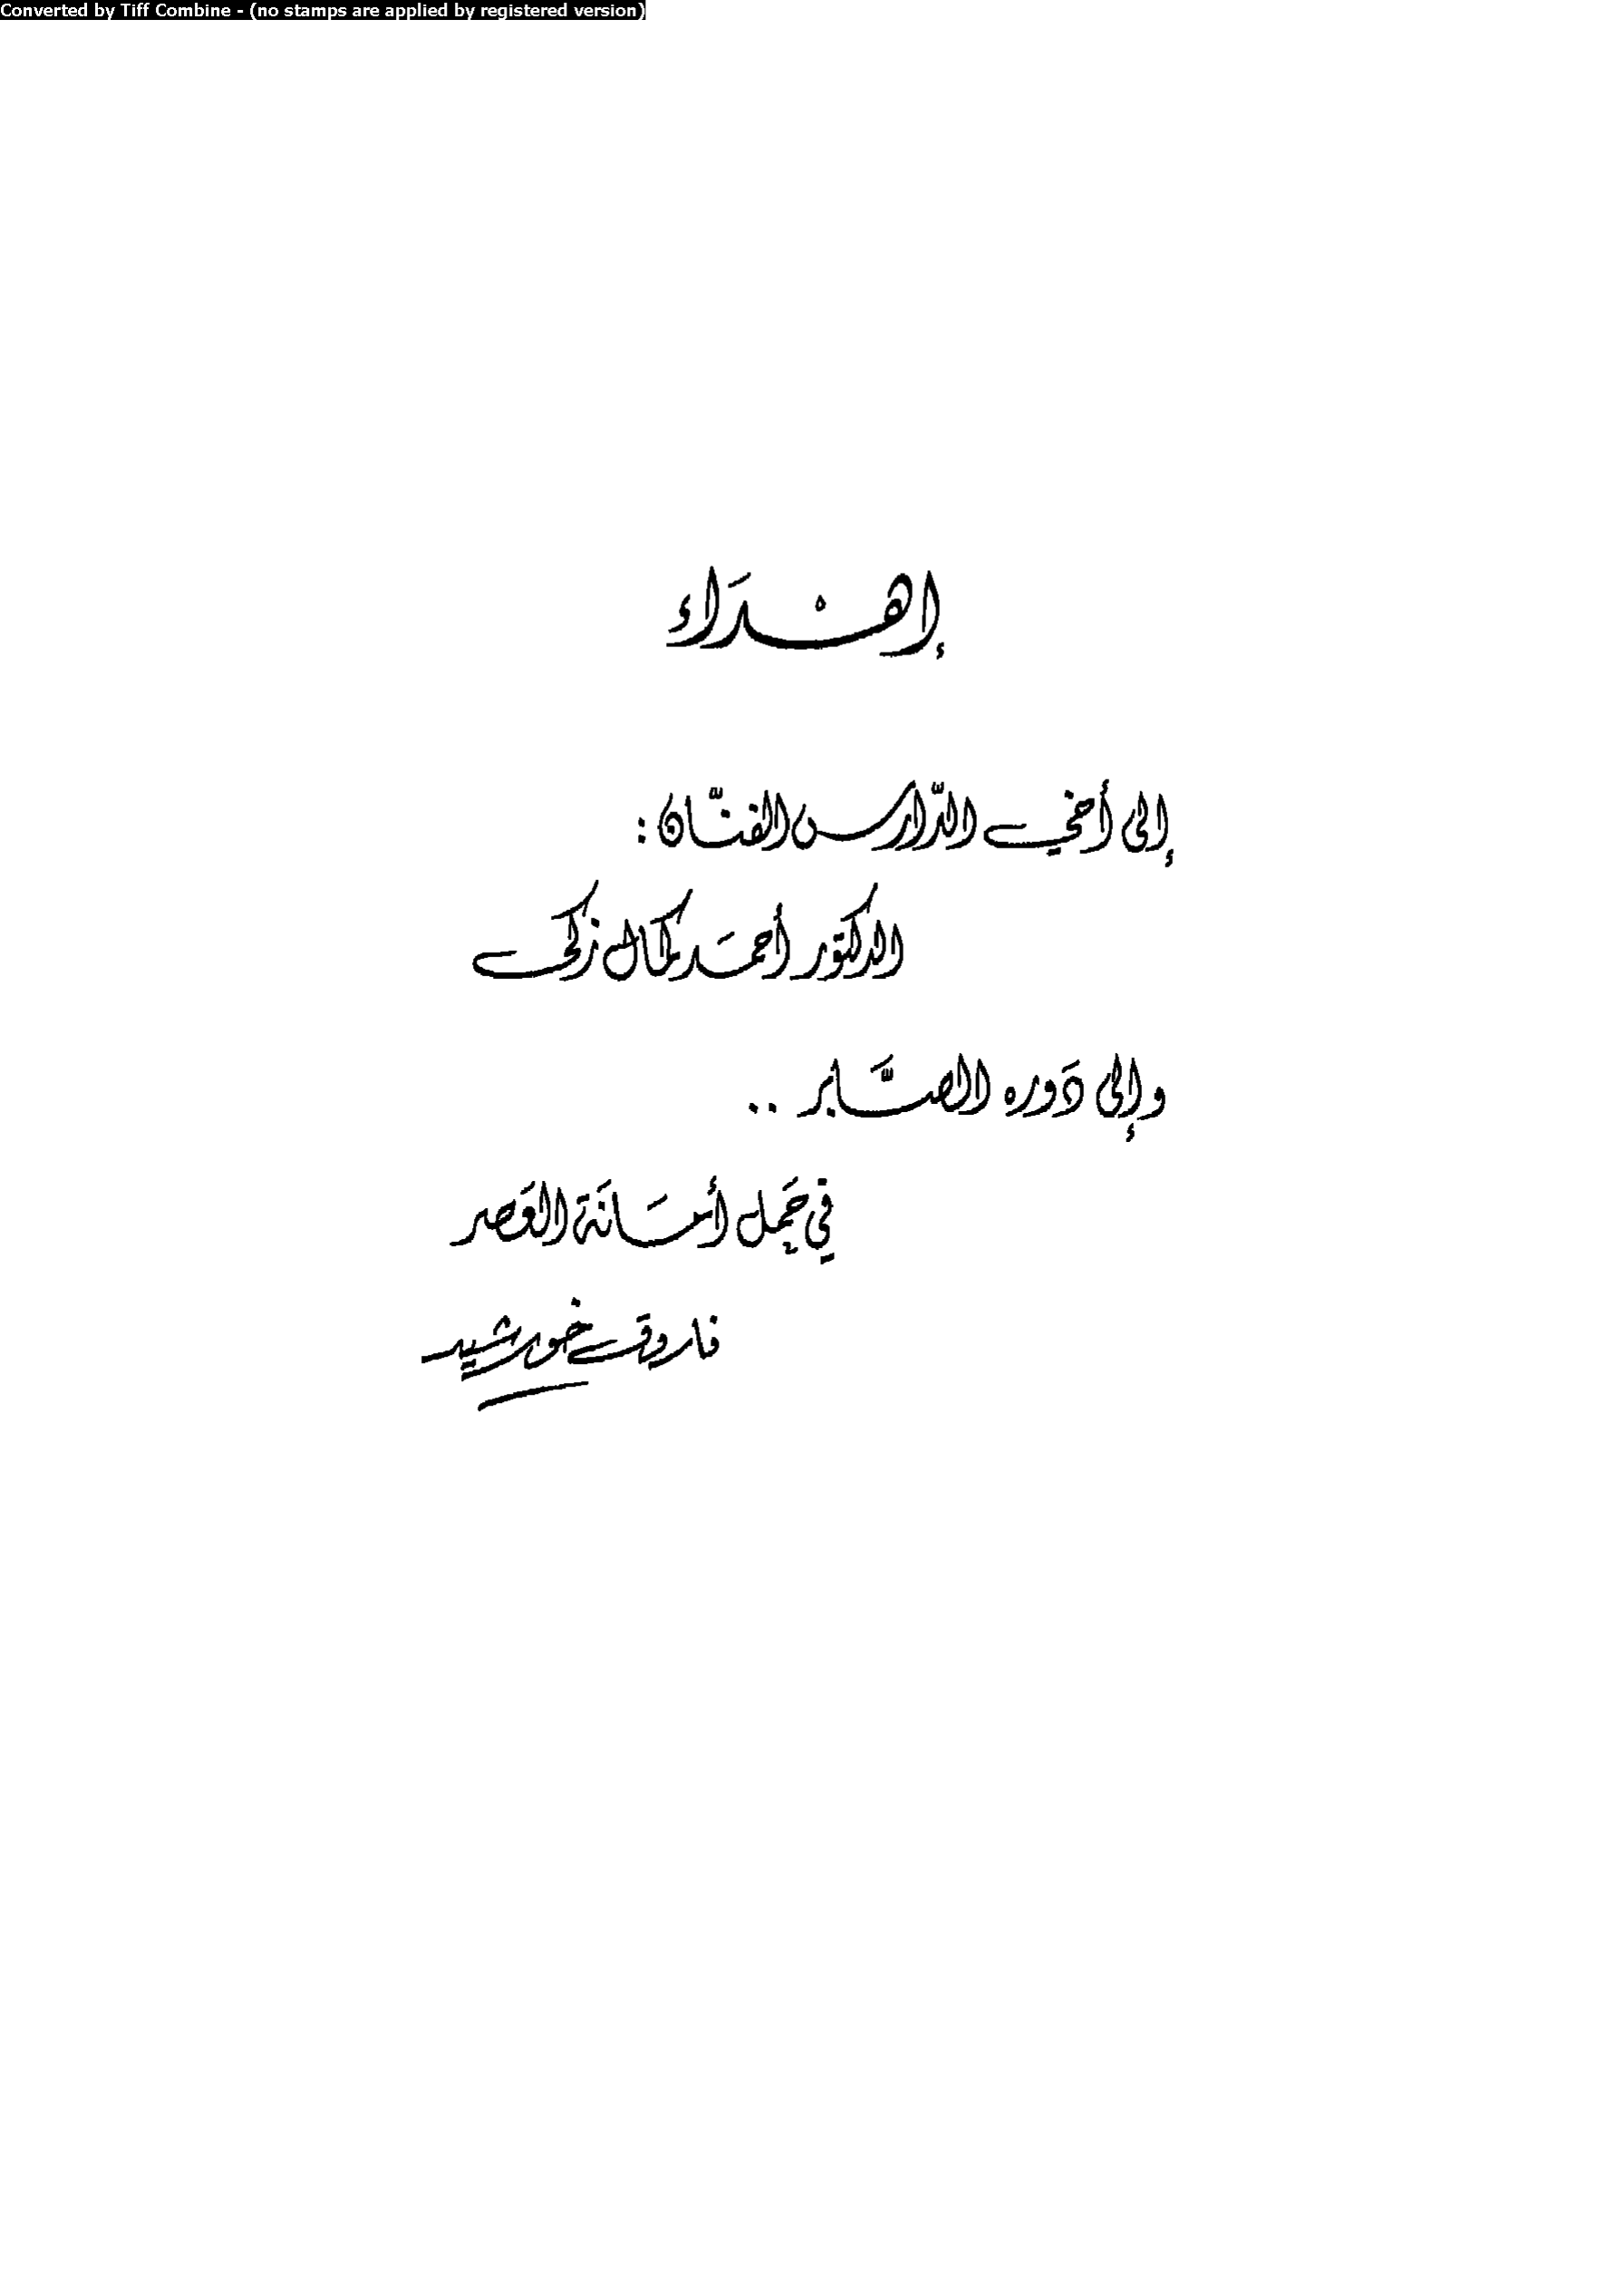 Converted by Tiff Combine - (no stamps are applied by registered version)
إهْدَاء
إلى أخي الدّارس الفنّان :
الدكتور أحمَد كمال زكي
وإلى دَوره الصَّابر ..
في حَمل أمَانَة العَصر
فاروق خورشيد